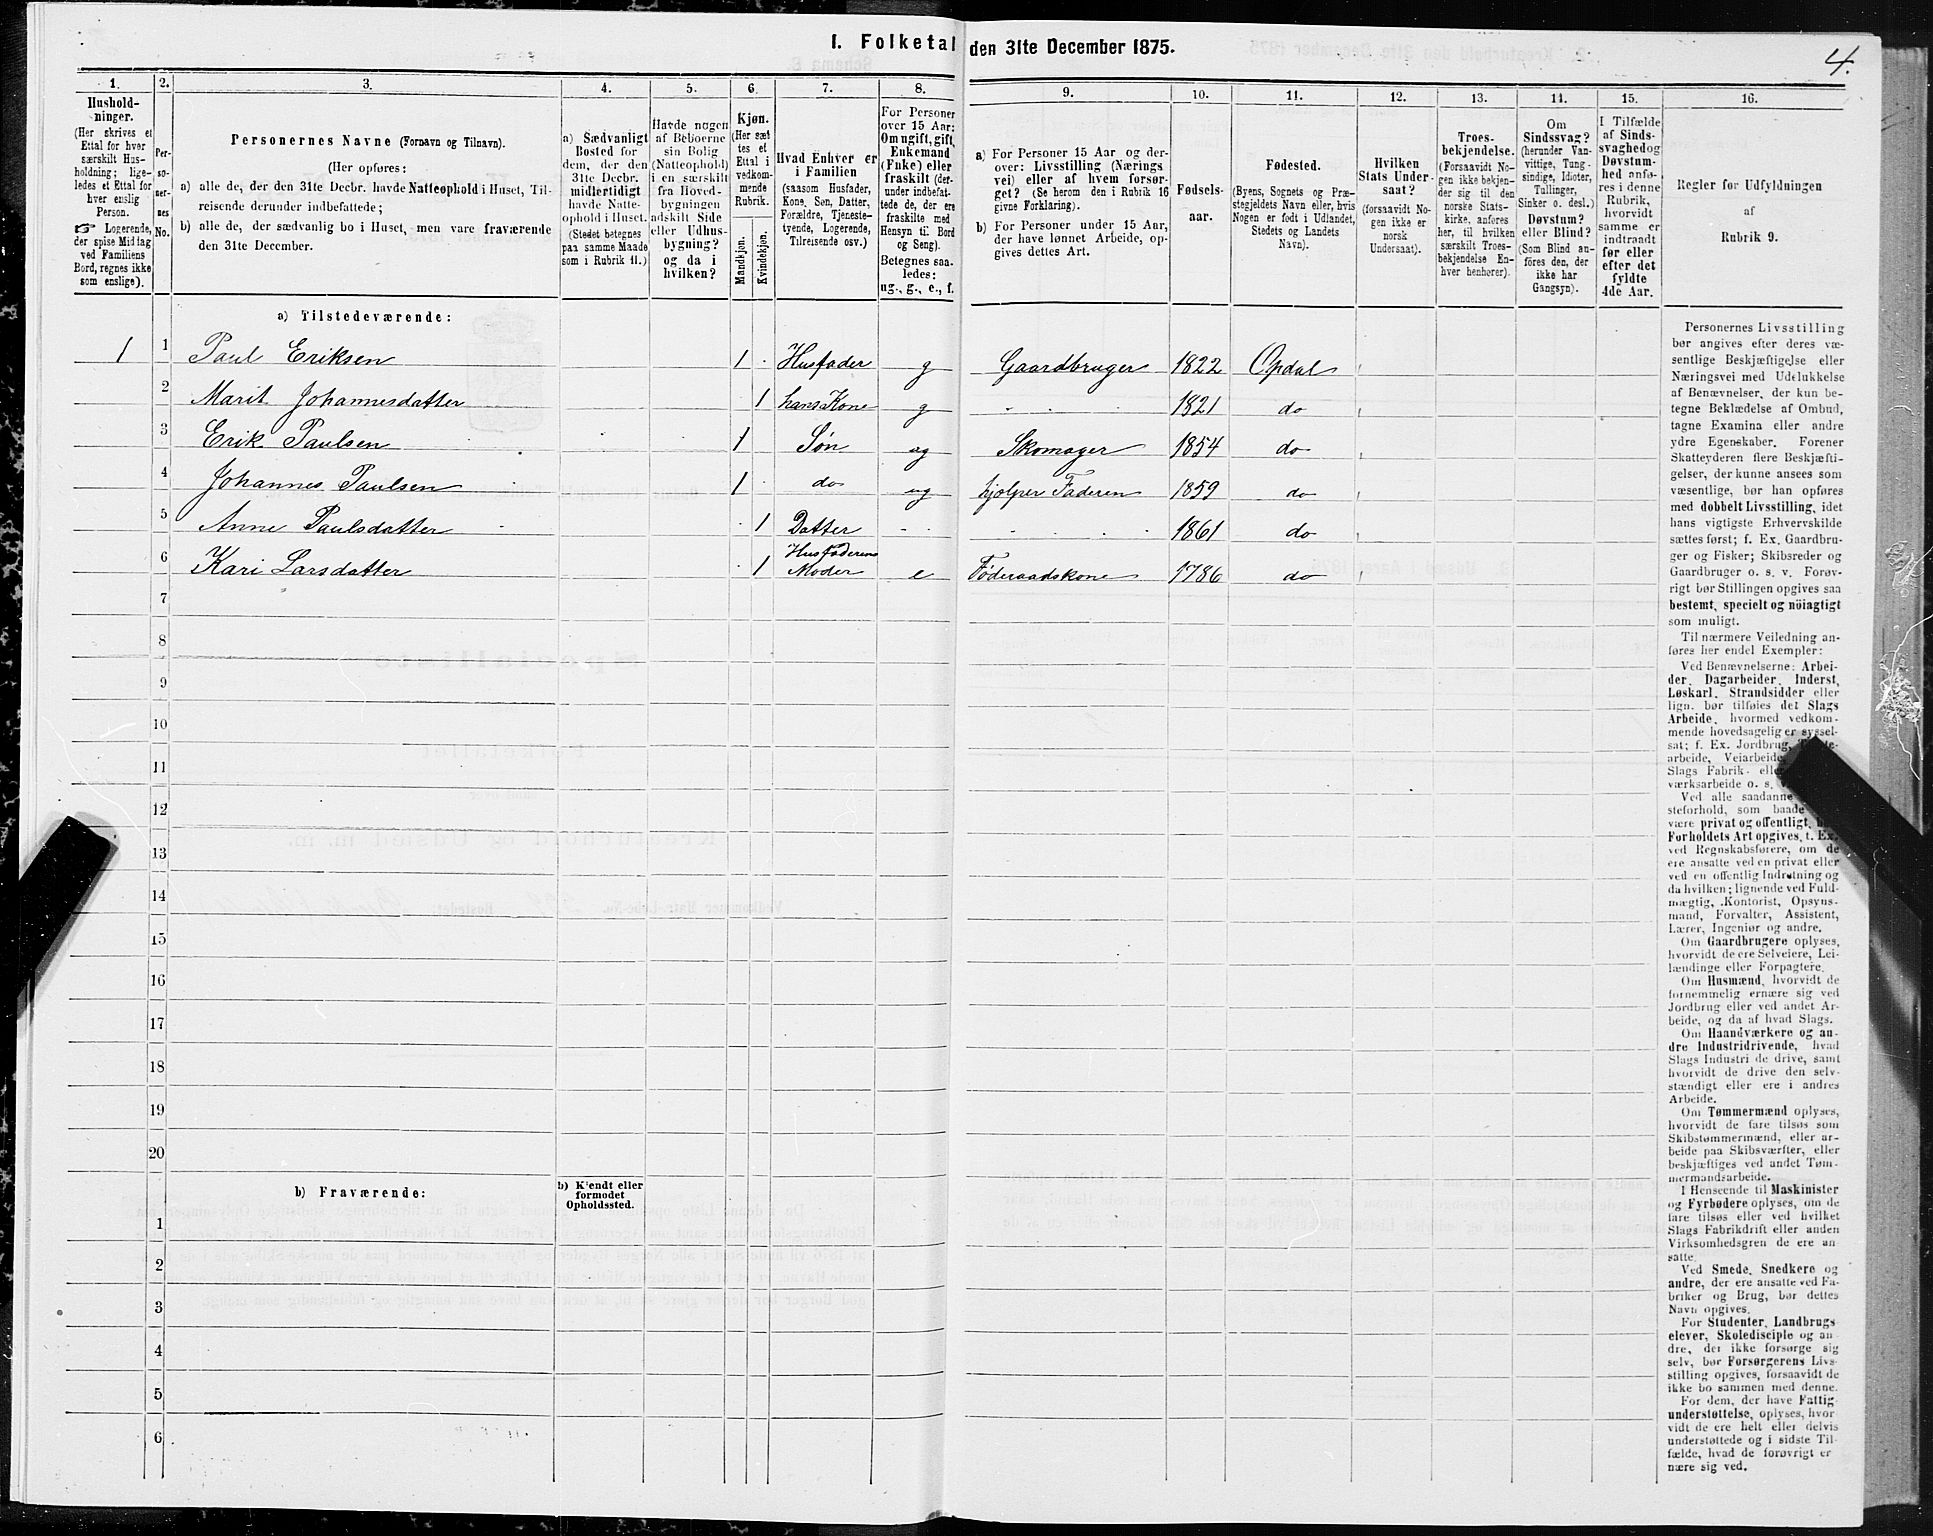 1. Folketal den 31te December 1875.
4.
1. 2. 3. 4. 5. 6. 7. 8. 9. 10. 11. 12. 13. 14. 15. 16.
Hushold-
ninger.
(Her skrives et
Ettal for hver
særskilt Hus-
holdning; lige-
ledes et Ettal for
hver enslig
Person.
Logerende,
der spise Middag
ved Familiens
Bord, regnes ikke
som enslige).
Per-
so-
ner-
nes
No.
Personernes Navne (Fornavn og Tilnavn).
(Her opføres:
a) alle de, der den 31te Decbr. havde Natteophold i Huset, Til-
reisende derunder indbefattede;
b) alle de, der sædvanlig bo i Huset, men vare fraværende
den 31te December.
a) Sædvanligt
Bosted for
dem, der den
31te Decbr.
midlertidigt
havde Natte-
ophold i Huset.
(Stedet betegnes
paa samme Maade
som i Rubrik 11.)
Havde nogen
af Beboerne
sin Bolig
(Natteophold)
i en særskilt
fra Hoved-
bygningen
adskilt Side
eller Udhus-
bygning?
og da i
hvilken?
Kjøn.
(Her sæt
tes et
Ettal i
vedkom-
mende
Rubrik.
Mandkjøn.
Kvindekjøn.
Hvad Enhver er
i Familien
(saasom Husfader,
Kone, Søn, Datter,
Forældre, Tjeneste-
tyende, Logerende,
Tilreisende osv.)
For Personer
over 15 Aar:
Om ugift, gift,
Enkemand
(Enke) eller
fraskilt (der-
under indbefat-
tede de, der ere
fraskilte med
Hensyn til Bord
og Seng).
Betegnes saa-
ledes:
ug., g., e., f.
a) For Personer 15 Aar og der-
over: Livsstilling (Nærings
vei) eller af hvem forsør-
get? (Se herom den i Rubrik 16
givne Forklaring).
b) For Personer under 15 Aar,
der have lønnet Arbeide, op-
gives dettes Art.
Fødsels-
aar.
Fødested.
(Byens, Sognets og Præ-
stegjeldets Navn eller, hvis
Nogen er født i Udlandet,
Stedets og Landets
Navn).
Hvilken
Stats Under-
saat?
(forsaavidt No-
gen ikke er
norsk
Undersaat).
Troes-
bekjendelse.
(Forsaavidt No-
gen ikke bekjen-
der sig til den
norske Stats-
kirke, anføres
her, til hvilken
særskilt Troes-
bekjendelse En-
hver henhører).
Om
Sindssvag?
(herunder Van-
vittige, Tung-
sindige, Idioter,
Tullinger,
Sinker o. desl.)
Døvstum?
eller Blind?
(Som Blind an-
føres den, der
ikke har
Gangsyn).
I Tilfælde
af Sinds-
svaghed og
Døvstum-
hed anfø-
res i denne
Rubrik,
hvorvidt
samme er
indtraadt
før eller
efter det
fyldte
4de Aar.
Regler for Udfyldningen
af
Rubrik 9.
a) Tilstedeværende:
1 1 Paul Eriksen 1 Husfader g Gaardbruger 1822 Opdal
2 Marit Johannesdatter 1 hans Kone g 1821 do
3 Erik Paulsen 1 Søn ug Skomager 1854 do
4 Johannes Paulsen 1 do ug hjælper Faderen 1859 do
5 Anne Paulsdatter 1 Datter 1861 do
6 Kari Larsdatter 1 Husfaderens Moder e Føderaadskone 1786 do
7
8
9
10
11
12
13
14
15
16
17
18
19
20
b) Fraværende:
b) Kjendt eller
formodet
Opholdssted.
1
2
3
4
5
6
Personernes Livsstilling
bør angives efter deres væ-
sentlige Beskjæftigelse eller
Næringsvei med Udelukkelse
af Benævnelser, der kun be-
tegne Beklædelse af Ombud,
tagne Examina eller andre
ydre Egenskaber. Forener
Skatteyderen flere Beskjæfti-
gelser, der kunne ansees som
væsentlige, bør han opføres
med dobbelt Livsstilling, idet
hans vigtigste Erhvervskilde
sættes først; f. Ex. Gaardbru-
ger og Fisker; Skibsreder og
Gaardbruger o. s. v. Forøv-
rigt bør Stillingen opgives saa
bestemt, specielt og nöiagtigt
som muligt.
Til nærmere Veiledning an-
føres her endel Exempler:
Ved Benævnelserne: Arbei-
der, Dagarbeider, Inderst,
Løskarl, Strandsidder eller
lign. bør tilføies det Slags
Arbeide, hvormed vedkom-
mende hovedsagelig er syssel-
sat; f. Ex. Jordbrug,
arbeide, Veiarbeide,
Slags Fabrik- eller
værksarbeide o. s.
Ved alle saadanne
steforhold, som baade
være privat og offentligt,
Forholdets Art opgives, t. Ex.
ved Regnskabsførere, om de
ere ansatte ved en privat eller
ved en offentlig Indretning og
da hvilken; lignende ved Fuld-
mægtig, Kontorist, Opsyns-
mand, Forvalter, Assistent,
Lærer, Ingeniør og andre.
Om Gaardbrugere oplyses,
hvorvidt de ere Selveiere, Lei-
lændinge eller Forpagtere.
Om Husmænd, hvorvidt de
fornemmelig ernære sig ved
Jordbrug eller ved andet Ar-
beide, og da af hvad Slags.
Om Haandværkere og an-
dre Industridrivende, hvad
Slags Industri de drive, samt
hvorvidt de drive den selv-
stændigt eller ere i andres
Arbeide.
Om Tømmermænd oplyses,
hvorvidt de fare tilsøs som
Skibstømmermænd, eller ar-
beide paa Skibsværfter, eller
beskjæftiges ved andet Tøm-
mermandsarbeide.
I Henseende til Maskinister
og Fyrbødere oplyses, om de
fare tilsøs eller ved hvilket
Slags Fabrikdrift eller anden
Virksomhedsgren de ere an-
satte.
Ved Smede, Snedkere og
andre, der ere ansatte ved Fa-
briker og Brug, bør dettes
Navn opgives.
For Studenter, Landbrugs
elever, Skoledisciple og an-
dre, der ikke forsørge sig
selv, bør Forsørgerens Livs-
stilling opgives, forsaavidt de
ikke bo sammen med denne.
For dem, der have Fattig-
understøttelse, oplyses, hvor-
vidt de ere helt eller delvis
understøttede og i sidste Til-
fælde, hvad de forøvrigt er-
nære sig ved.